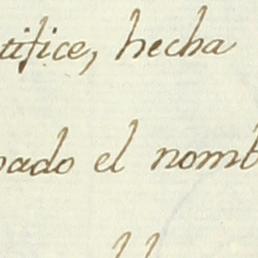 tifice, hecha
pado el nomb